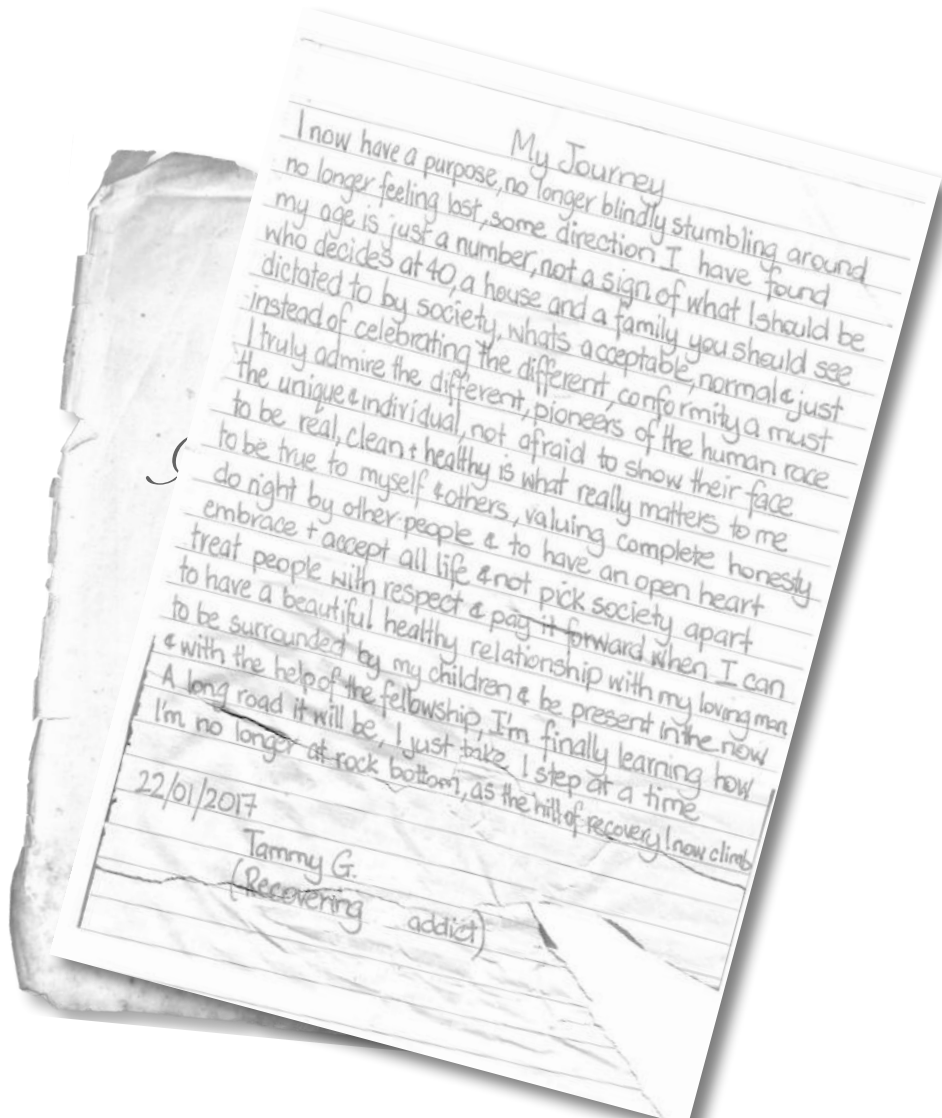 My Journey
I now have a purpose, no longer blindly stumbling around
no longer feeling lost, some direction I have found
my age is just a number, not a sign of what I should be
who decides at 40, a house and a family you should see
dictated to by society, whats acceptable, normal & just
instead of celebrating the different, conformity a must
I truly admire the different, pioneers of the human race
the unique & individual, not afraid to show their face
to be real, clean + healthy is what really matters to me
to be true to myself & others, valuing complete honesty
do right by other people & to have an open heart
embrace + accept all life & not pick society apart
treat people with respect & pay it forward when I can
to have a beautiful healthy relationship with my loving man
to be surrounded by my children & be present in the now
& with the help of the fellowship, I'm finally learning how
A long road it will be, I just take 1 step at a time
I'm no longer at rock bottom, as the hill of recovery I now climb
22/01/2017
Tammy G.
(Recovering addict)